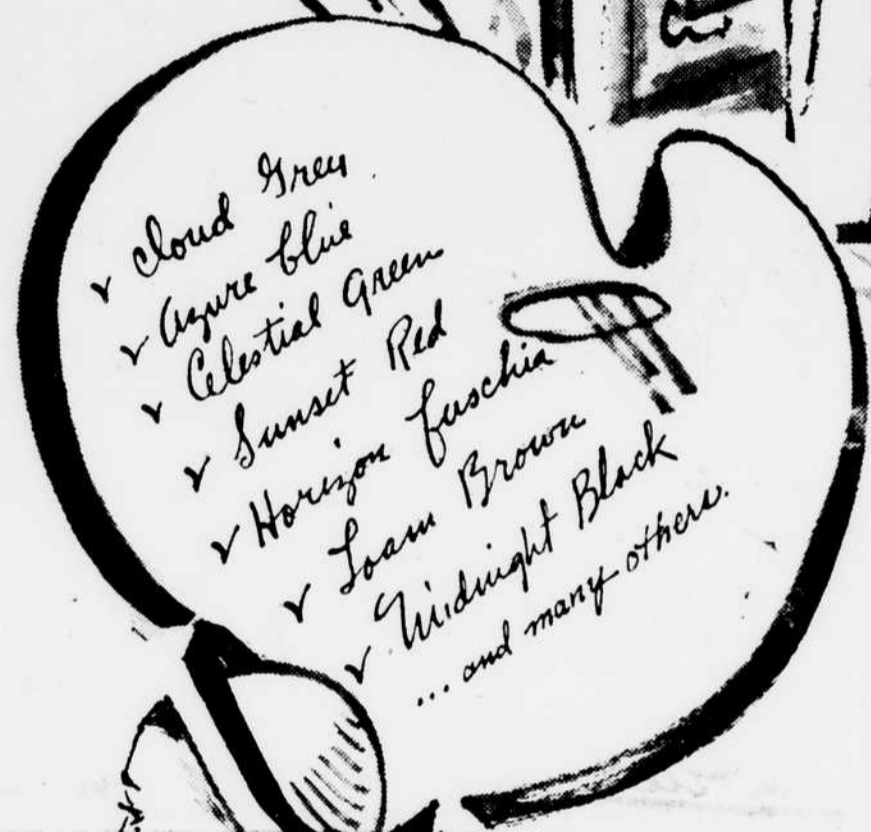 ✓ Cloud Grey
✓ Azure blue
✓ Celestial Green
✓ Sunset Red
✓ Horizon fuschia
✓ Loam Brown
✓ Midnight Black
... and many others.